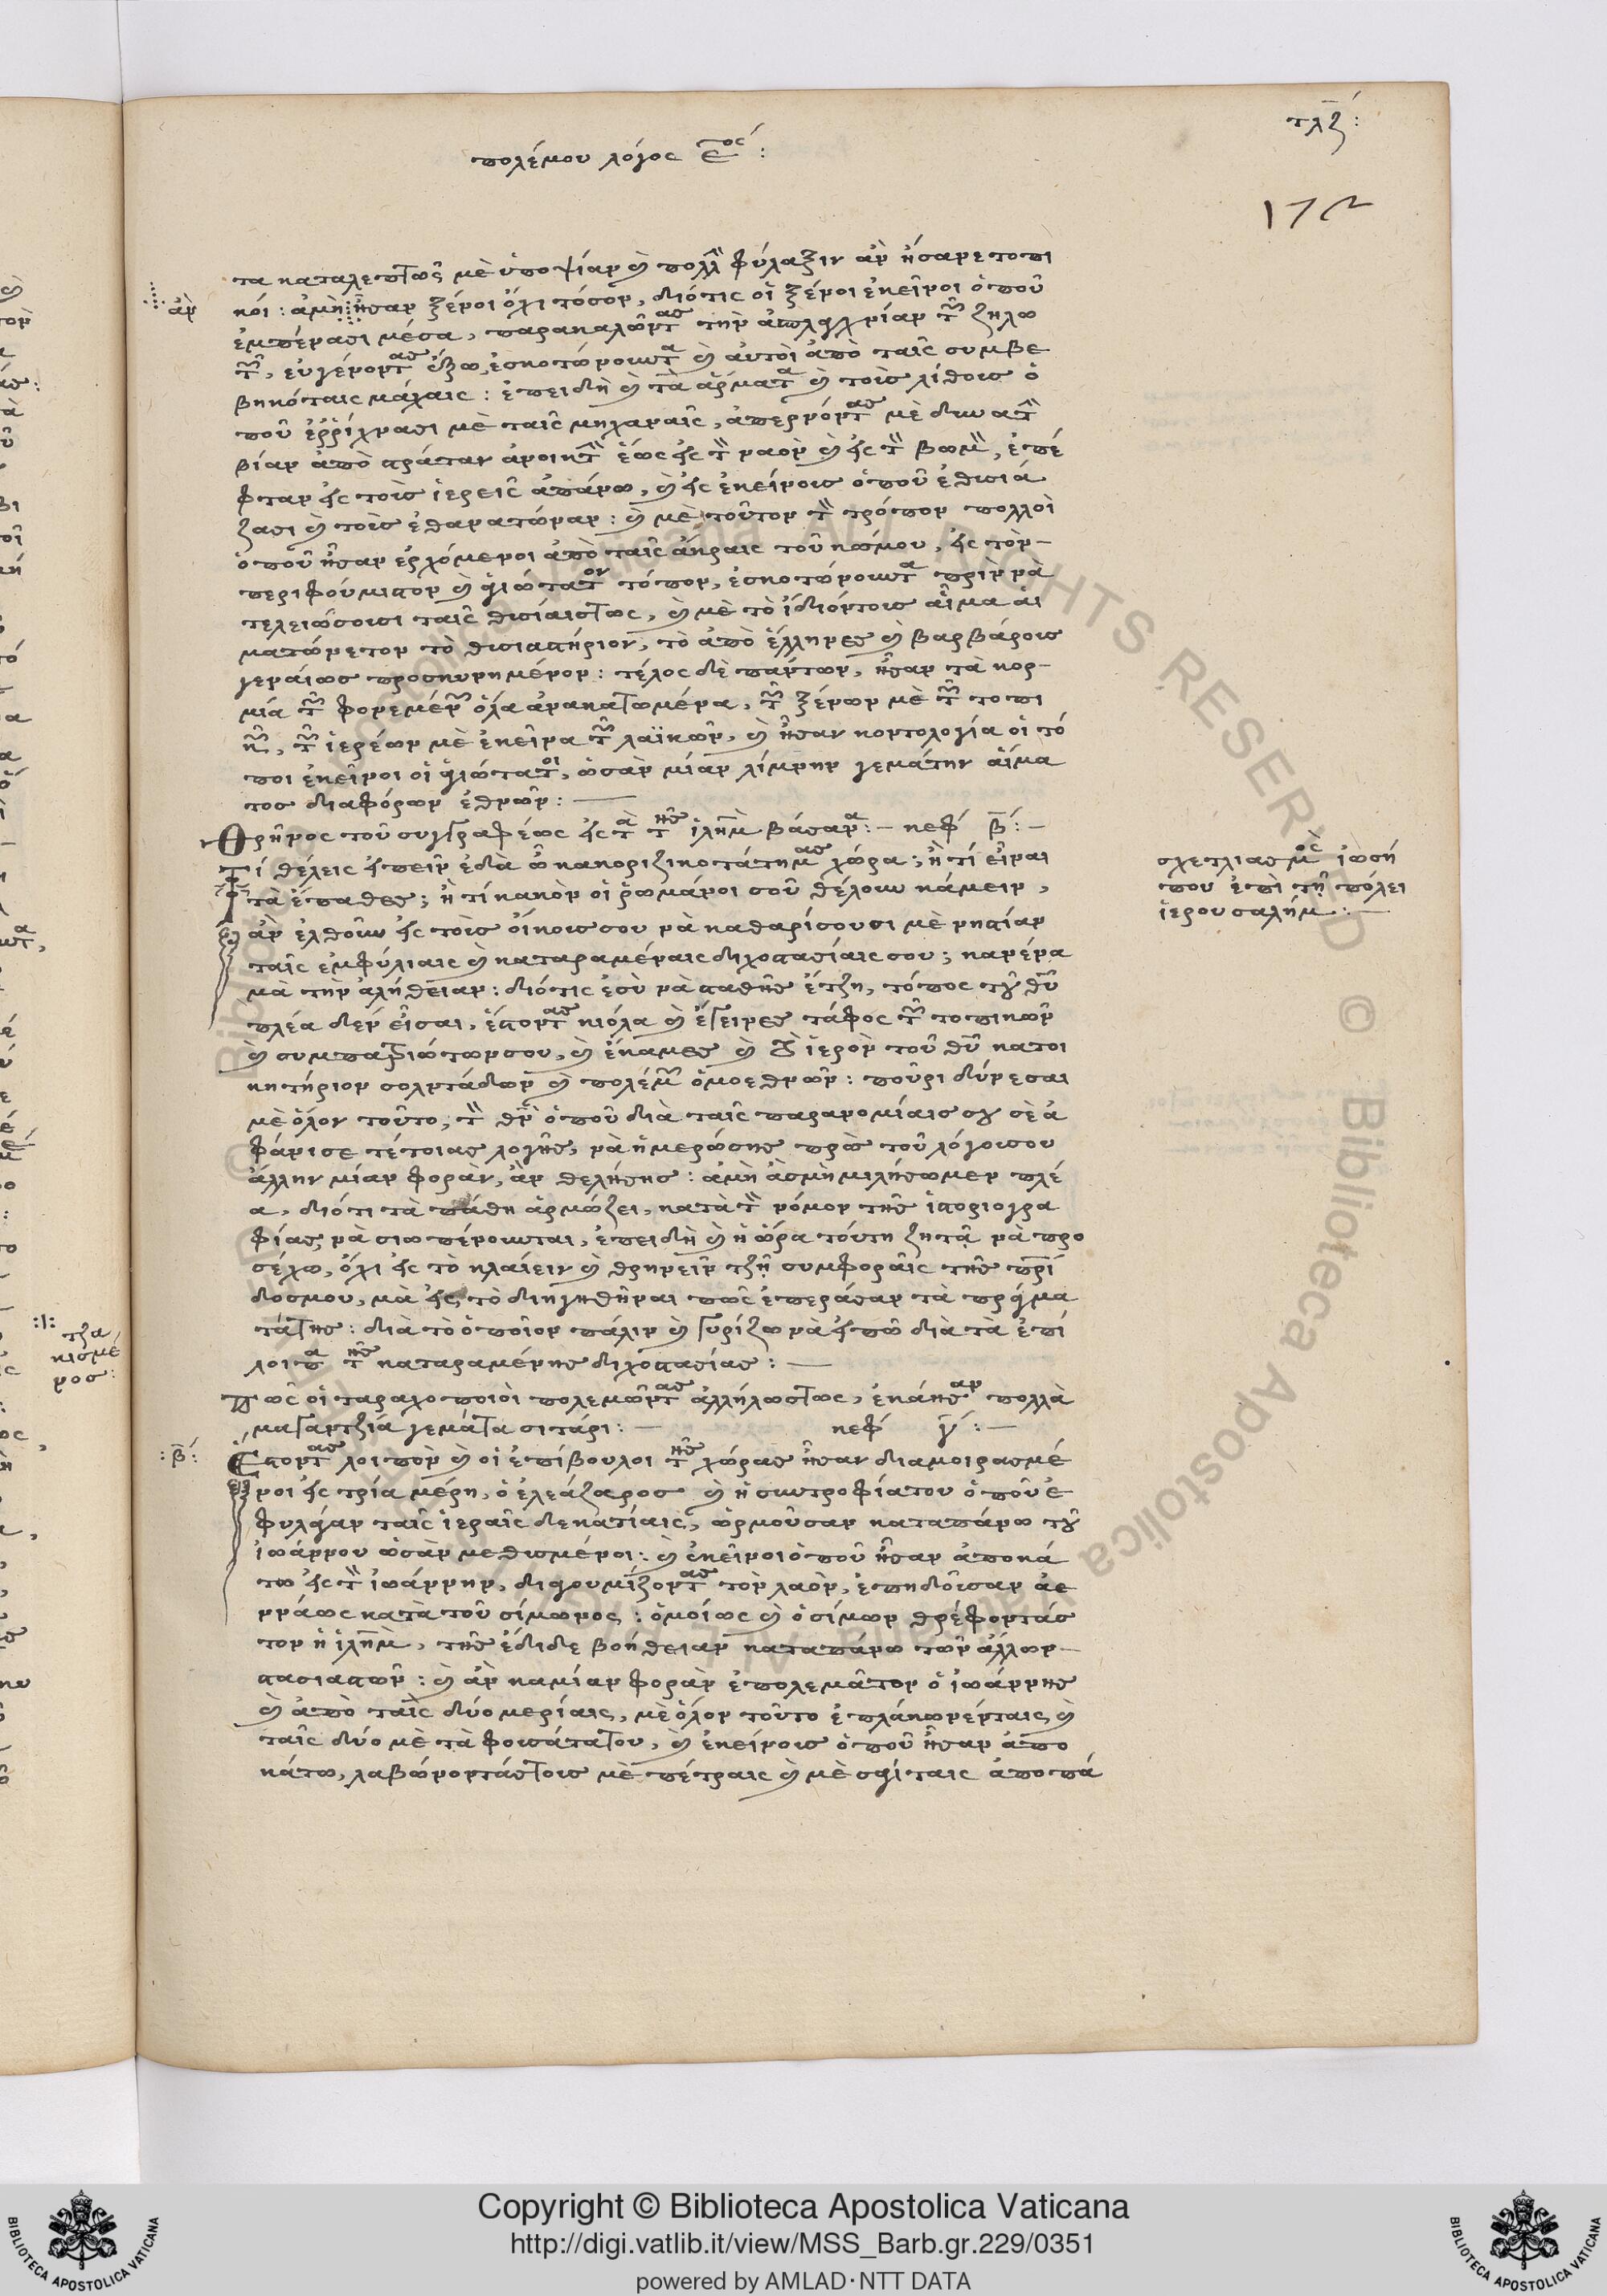 τλζ:
πολέμου λόγος ε^ος:
172
τα καταλεπτῶς μὲ ὑποψίαν καὶ πολλὴν φύλαξιν ἀν ἤσανε τοπι
κοί: ἀμὴ ἦσαν ξένοι ὄχι τόσον, διότις οἱ ξένοι ἐκεῖνοι ὁποῦ
ἀν
ἐμπένασι μέσα, παρακαλῶντας τὴν
τῶν, εὐγένοντας ἔξω, ἐσκοτώνουνταν καὶ αὐτοὶ ἀπὸ ταῖς συμβε
βηκόταις μάχαις: ἐπειδὴ καὶ τὰ ἄρματα καὶ τοὺς λίθους ὁ
ποῦ ἐῤῥίχνασι μὲ ταῖς μηχαναῖς, ἀπερνόντας μὲ δυνατὴν
βίαν ἀπὸ
ἕως εἰς τὸν ναὸν καὶ εἰς τὸν βωμὸν, ἐπέ
φταν εἰς τοὺς ἱερεῖς ἀπάνω, καὶ εἰς ἐκείνους ὁποῦ ἐθυσιά
ζασι καὶ τοὺς ἐθανατώναν: καὶ μὲ τοῦτον τὸν τρόπον πολλοὶ
ὁποῦ ἦσαν ἐρχόμενοι ἀπὸ ταῖς ἄκραις τοῦ κόσμου, εἰς τὸν
περιφούμιστον καὶ ἁγιώτατον τόπον, ἐσκοτώνουνταν πρὶν νὰ
τελειώσουσι ταῖς θυσίαις τως, καὶ μὲ τὸ ἰδιόντους αἷμα αἱ
ματώνετον τὸ θυσιαστήριον, τὸ ἀπὸ ἕλληνες καὶ βαρβάρους
γεναίως προσκυνημένον: τέλος δὲ πάντων, ἦσαν τὰ κορ
μιά τῶν φονεμένων ὅλα ἀνακατωμένα, τῶν ξένων μὲ τῶν τοπι
κῶν, τῶν ἱερέων μὲ ἐκεῖνα τῶν λαϊκῶν, καὶ ἦσαν κοντολογία οἱ τό
ποι ἐκεῖνοι οἱ ἁγιώτατοι, ὡσὰν μίαν λίμνην γεμάτην αἵμα
τος διαφόρων ἐθνῶν:
Θρῆνος τοῦ συγγραφέως εἰς τὰ τῆς ἱλημ βάσανα: κεφ β:
Τί θέλεις εἰπεῖν ἐδὰ ὦ κακοριζικοτάτη μας χώρα; ἢ τί εἶναι
τὰ ἔπαθες; ἢ τί κακὸν οἱ ῥωμάνοι σοῦ θέλουν κάμειν,
ἀν ἐλθοῦν εἰς τοὺς οἴκους σου νὰ καθαρίσουσι μὲ νηστίαν
ταῖς ἐμφύλιαις καὶ καταραμέναις διχοστασίαις σου; κανένα
μὰ τὴν ἀλήθειαν: διότις ἐσὺ νὰ σταθῆς ἔτζη, τόπος τοῦ θυ
πλέα δὲν εἶσαι, ἔστοντας κιόλα καὶ ἔγεινες τάφος τῶν τοπικῶν
καὶ συμπατριώτων σου, καὶ ἔκαμες καὶ τὸ ἱερὸν τοῦ θυ κατοι
κητήριον σολντάδων καὶ πολέμων ὁμοεθνῶν: ποῦρι δύνεσαι
μὲ ὅλον τοῦτο, τὸν θν ὁποῦ διὰ ταῖς παρανομίαις σου σὲ ἀ
φάνισε τέτοιας λογῆς, νὰ ἡμερώσης πρὸ τοῦ λόγου σου
ἄλλην μίαν φορὰν, ἀν θελήσης: ἀμὴ ἂς μὴ μιλήσωμεν πλέ
α, διότι τὰ πάθη ἁρμόζει, κατὰ τὸν νόμον τῆς ἱστοριογρα
φίας, νὰ σιωπένουνται, ἐπειδὴ καὶ ἡ ὥρα τούτη ζητᾷ νὰ προ
σέχω, ὄχι εἰς τὸ κλαίειν καὶ θρηνεῖν τζῆ συμφοραῖς τῆς πρί
δος μου, μὰ εἰς τὸ διηγηθῆναι πῶς ἐπεράσαν τὰ πράγμα
τά της: διὰ τὸ ὁποῖον πάλιν καὶ γυρίζω νὰ εἰπῶ διὰ τὰ ἐπί
λοιπα τῆς καταραμένης διχοστασίας:
Πῶς οἱ ταραχοποιοὶ πολεμῶντας ἀλλήλως τως, ἐκάησαν πολλὰ
μαγαντζιά γεμάτα σιτάρι: κεφ γ:
:β: Ἔστοντας λοιπὸν καὶ οἱ ἐπίβουλοι τῆς χώρας ἦσαν διαμοιρασμέ
νοι εἰς τρία μέρη, ὁ ἐλεάζαρος καὶ ἡ συντροφία του ὁποῦ ἐ
φυλάγαν ταῖς ἱεραῖς δεκατίαις, ὡρμοῦσαν καταπάνω τοῦ
ἰωάννου ὡσὰν μεθυσμένοι: καὶ ἐκεῖνοι ὁποῦ ἦσαν ἀποκά
τω εἰς τὸν ἰωάννην, διαγουμίζοντας τὸν λαὸν, ἐπηδοῦσαν ἀε
ννάως κατὰ τοῦ σίμωνος: ὁμοίως καὶ ὁ σίμων θρέφοντάς
τον ἡ ἱλημ, τῆς ἔδιδε βοήθειαν καταπάνω τῶν ἄλλων
στασιαστῶν: καὶ ἀν καμίαν φορὰν ἐπολεμᾶτον ὁ ἰωάννης
καὶ ἀπὸ ταῖς δύο μερίαις, μὲ ὅλον τοῦτο ἐπλάκωνέν ταις καὶ
ταῖς δύο μὲ τὰ φουσάτα του, καὶ ἐκείνους ὁποῦ ἦσαν ἀπο
κάτω, λαβώνοντάς τους μὲ πέτραις καὶ μὲ σαγίταις ἀποπά
σχετλιασμὸς ἰωσή
που ἐπὶ τῇ πόλει
ἱερουσαλήμ:
τζα
κισμέ
νος:
Copyright © Biblioteca Apostolica Vaticana
http://digi.vatlib.it/view/MSS_Barb.gr.229/0351
powered by AMLAD·NTT DATA
BIBLIOTECA APOSTOLICA VATICANA
BIBLIOTECA APOSTOLICA VATICANA